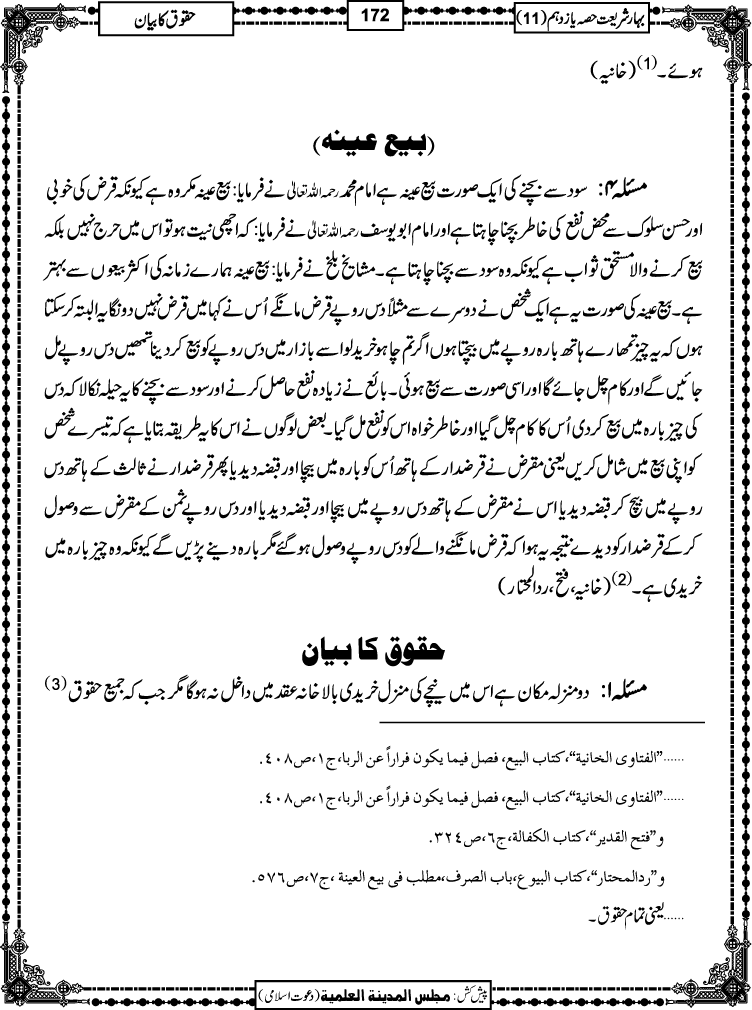 بہار شریعت حصہ یازدہم (11)
172
حقوق کا بیان
ہوئے۔(1) (خانیہ)
(بیع عینہ)
مسئلہ ۴: سود سے بچنے کی ایک صورت بیع عینہ ہے امام محمد رحمہ اللہ تعالیٰ نے فرمایا: بیع عینہ مکروہ ہے کیونکہ قرض کی خوبی
اور حسن سلوک سے محض نفع کی خاطر بچنا چاہتا ہے اور امام ابو یوسف رحمہ اللہ تعالیٰ نے فرمایا: کہ اچھی نیت ہو تو اس میں حرج نہیں بلکہ
بیع کرنے والا مستحق ثواب ہے کیونکہ وہ سود سے بچنا چاہتا ہے۔ مشایخ بلخ نے فرمایا: بیع عینہ ہمارے زمانہ کی اکثر بیعوں سے بہتر
ہے۔ بیع عینہ کی صورت یہ ہے ایک شخص نے دوسرے سے مثلاً دس روپے قرض مانگے اُس نے کہا میں قرض نہیں دونگا یہ البتہ کرسکتا
ہوں کہ یہ چیز تمھارے ہاتھ بارہ روپے میں بیچتا ہوں اگر تم چاہو خرید لو اسے بازار میں دس روپے کو بیع کر دینا تمھیں دس روپے مل
جائیں گے اور کام چل جائے گا اور اسی صورت سے بیع ہوئی۔ بائع نے زیادہ نفع حاصل کرنے اور سود سے بچنے کا یہ حیلہ نکالا کہ دس
کی چیز بارہ میں بیع کردی اُس کا کام چل گیا اور خاطر خواہ اس کو نفع مل گیا۔ بعض لوگوں نے اس کا یہ طریقہ بتایا ہے کہ تیسرے شخص
کو اپنی بیع میں شامل کریں یعنی مقرض نے قرضدار کے ہاتھ اُس کو بارہ میں بیچا اور قبضہ دیدیا پھر قرضدار نے ثالث کے ہاتھ دس
روپے میں بیچ کر قبضہ دیدیا اس نے مقرض کے ہاتھ دس روپے میں بیچا اور قبضہ دیدیا اور دس روپے ثمن کے مقرض سے وصول
کرکے قرضدار کو دیدے نتیجہ یہ ہوا کہ قرض مانگنے والے کو دس روپے وصول ہوگئے مگر بارہ دینے پڑیں گے کیونکہ وہ چیز بارہ میں
خریدی ہے۔(2) (خانیہ، فتح، ردالمحتار)
حقوق کا بیان
مسئلہ ۱: دو منزلہ مکان ہے اس میں نیچے کی منزل خریدی بالا خانہ عقد میں داخل نہ ہوگا مگر جب کہ جمیع حقوق (3)
......"الفتاوى الخانية"،كتاب البيع، فصل فيما يكون فراراً عن الربا،ج١،ص٤٠٨.
......"الفتاوى الخانية"،كتاب البيع، فصل فيما يكون فراراً عن الربا،ج١،ص٤٠٨.
و"فتح القدير"،كتاب الكفالة،ج٦،ص٣٢٤.
و"ردالمحتار"،كتاب البيوع،باب الصرف،مطلب فى بيع العينة ،ج٧،ص٥٧٦.
......یعنی تمام حقوق۔
پیش کش: مجلس المدينة العلمية (دعوت اسلامی)